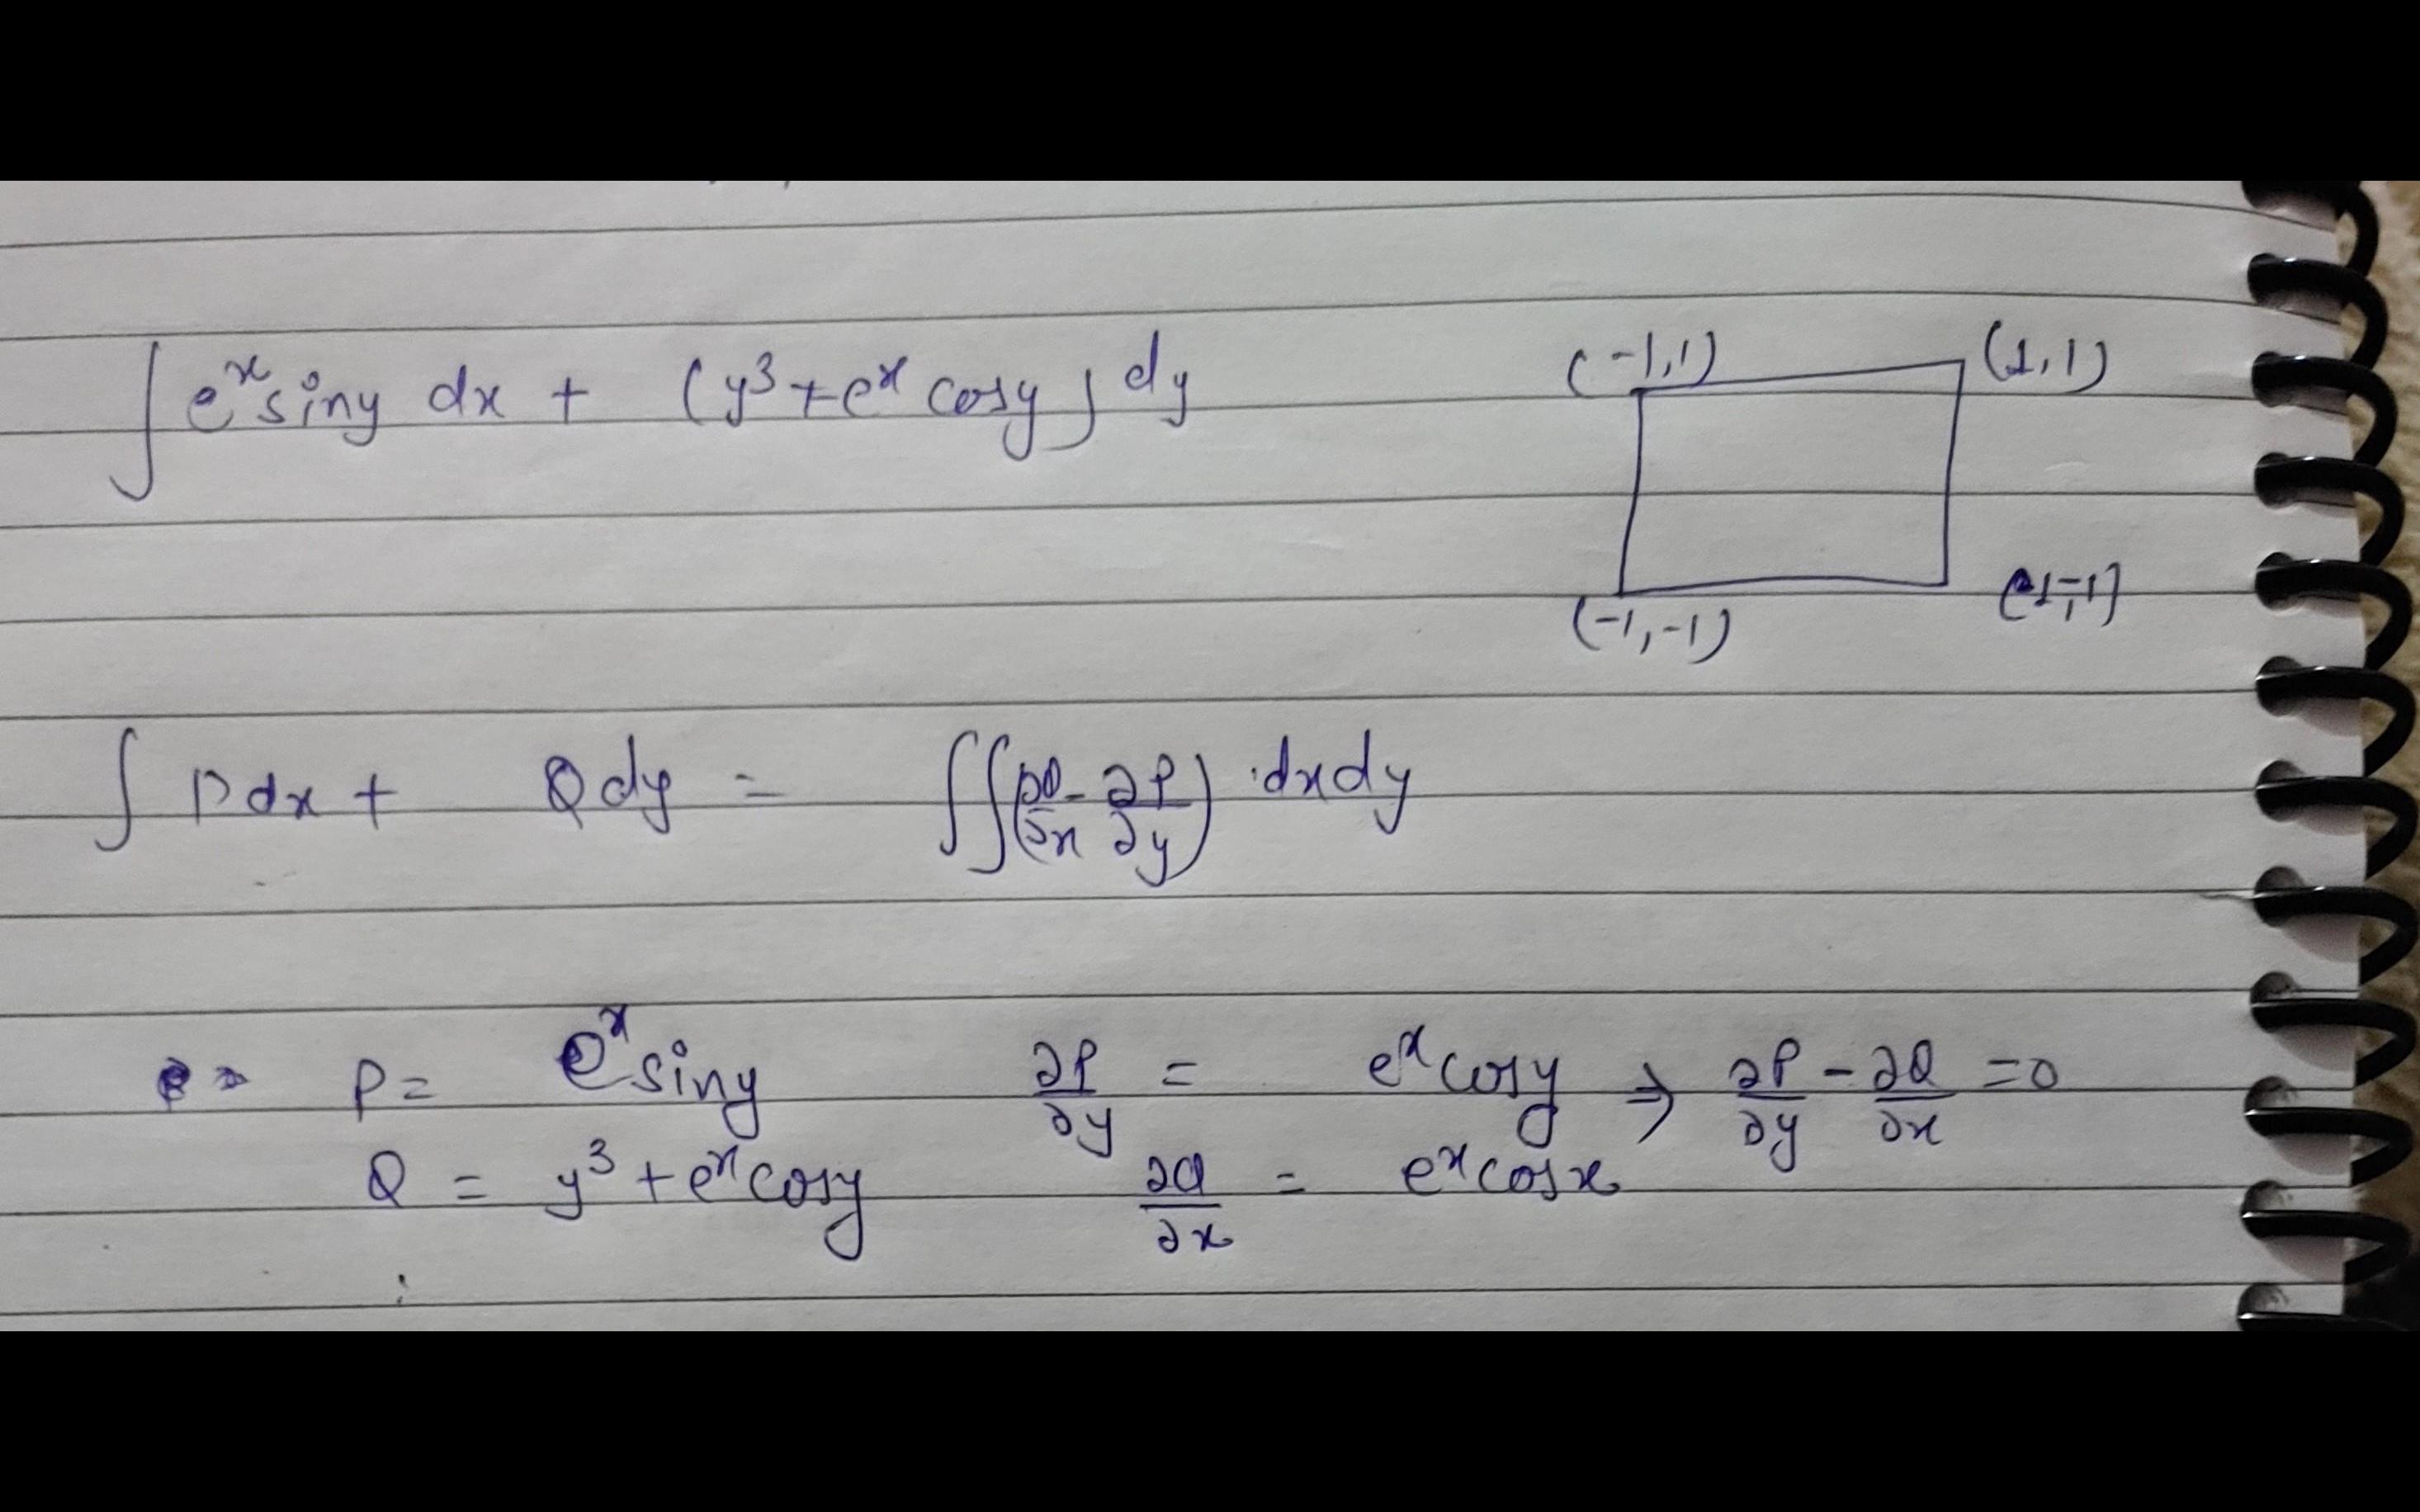 ∫ eˣ siny dx + (y³ + eˣ cosy) dy
(-1,1) (1,1)
(-1,-1) (1,-1)
∫ P dx + Q dy = ∫∫ (∂Q/∂x - ∂P/∂y) · dx dy
P = eˣ siny ∂P/∂y = eˣ cosy ⇒ ∂P/∂y - ∂Q/∂x = 0
Q = y³ + eˣ cosy ∂Q/∂x = eˣ cosx